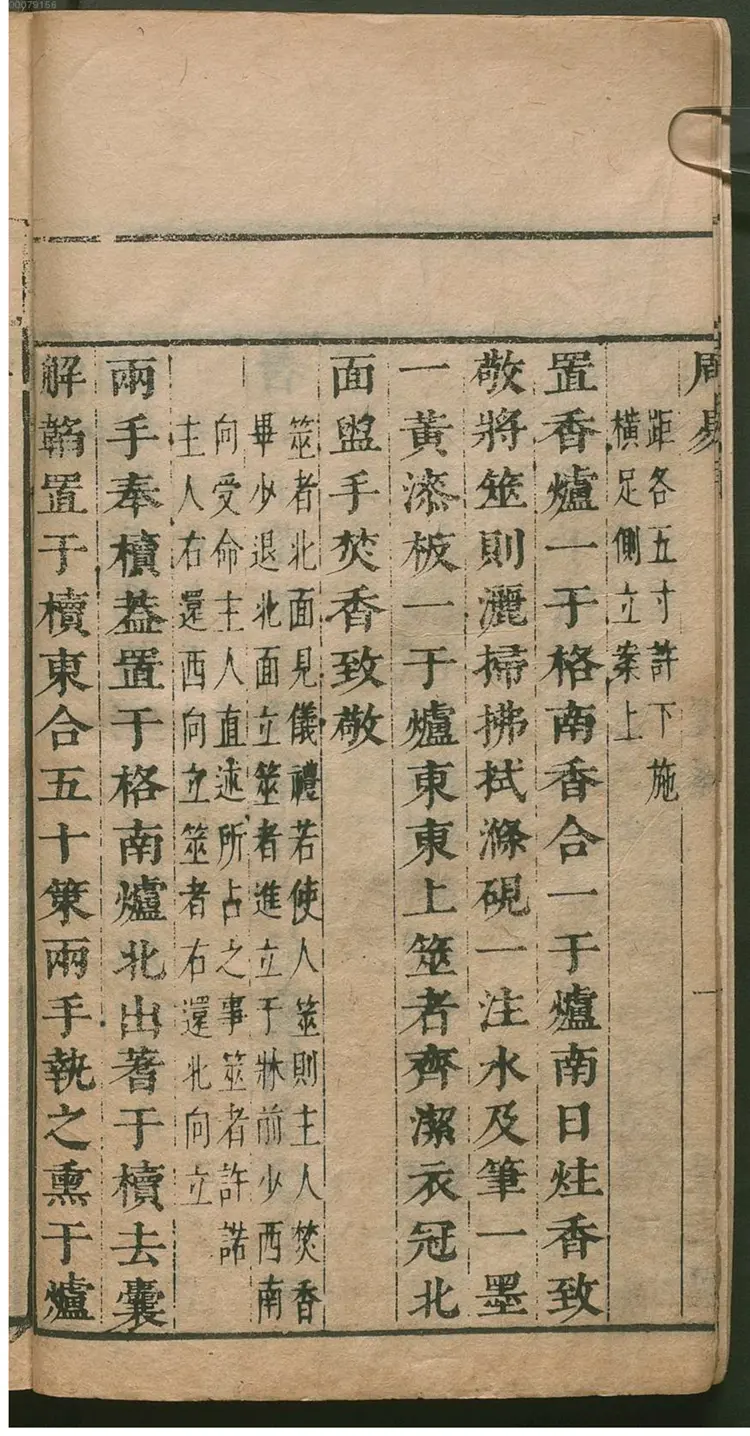 周易
距各五寸許下施
橫足側立案上
置香爐一于格南香合一于爐南日炷香致
敬將筮則灑掃拂拭滌硯一注水及筆一墨
一黃漆板一于爐東東上筮者齊潔衣冠北
面盥手焚香致敬
筮者北面見儀禮若使人筮則主人焚香
畢少退北面立筮者進立于牀前少西南
向受命主人直述所占之事筮者許諾
主人右還西向立筮者右還北向立
兩手奉櫝蓋置于格南爐北出蓍于櫝去囊
解韜置于櫝東合五十策兩手執之熏于爐
00079156